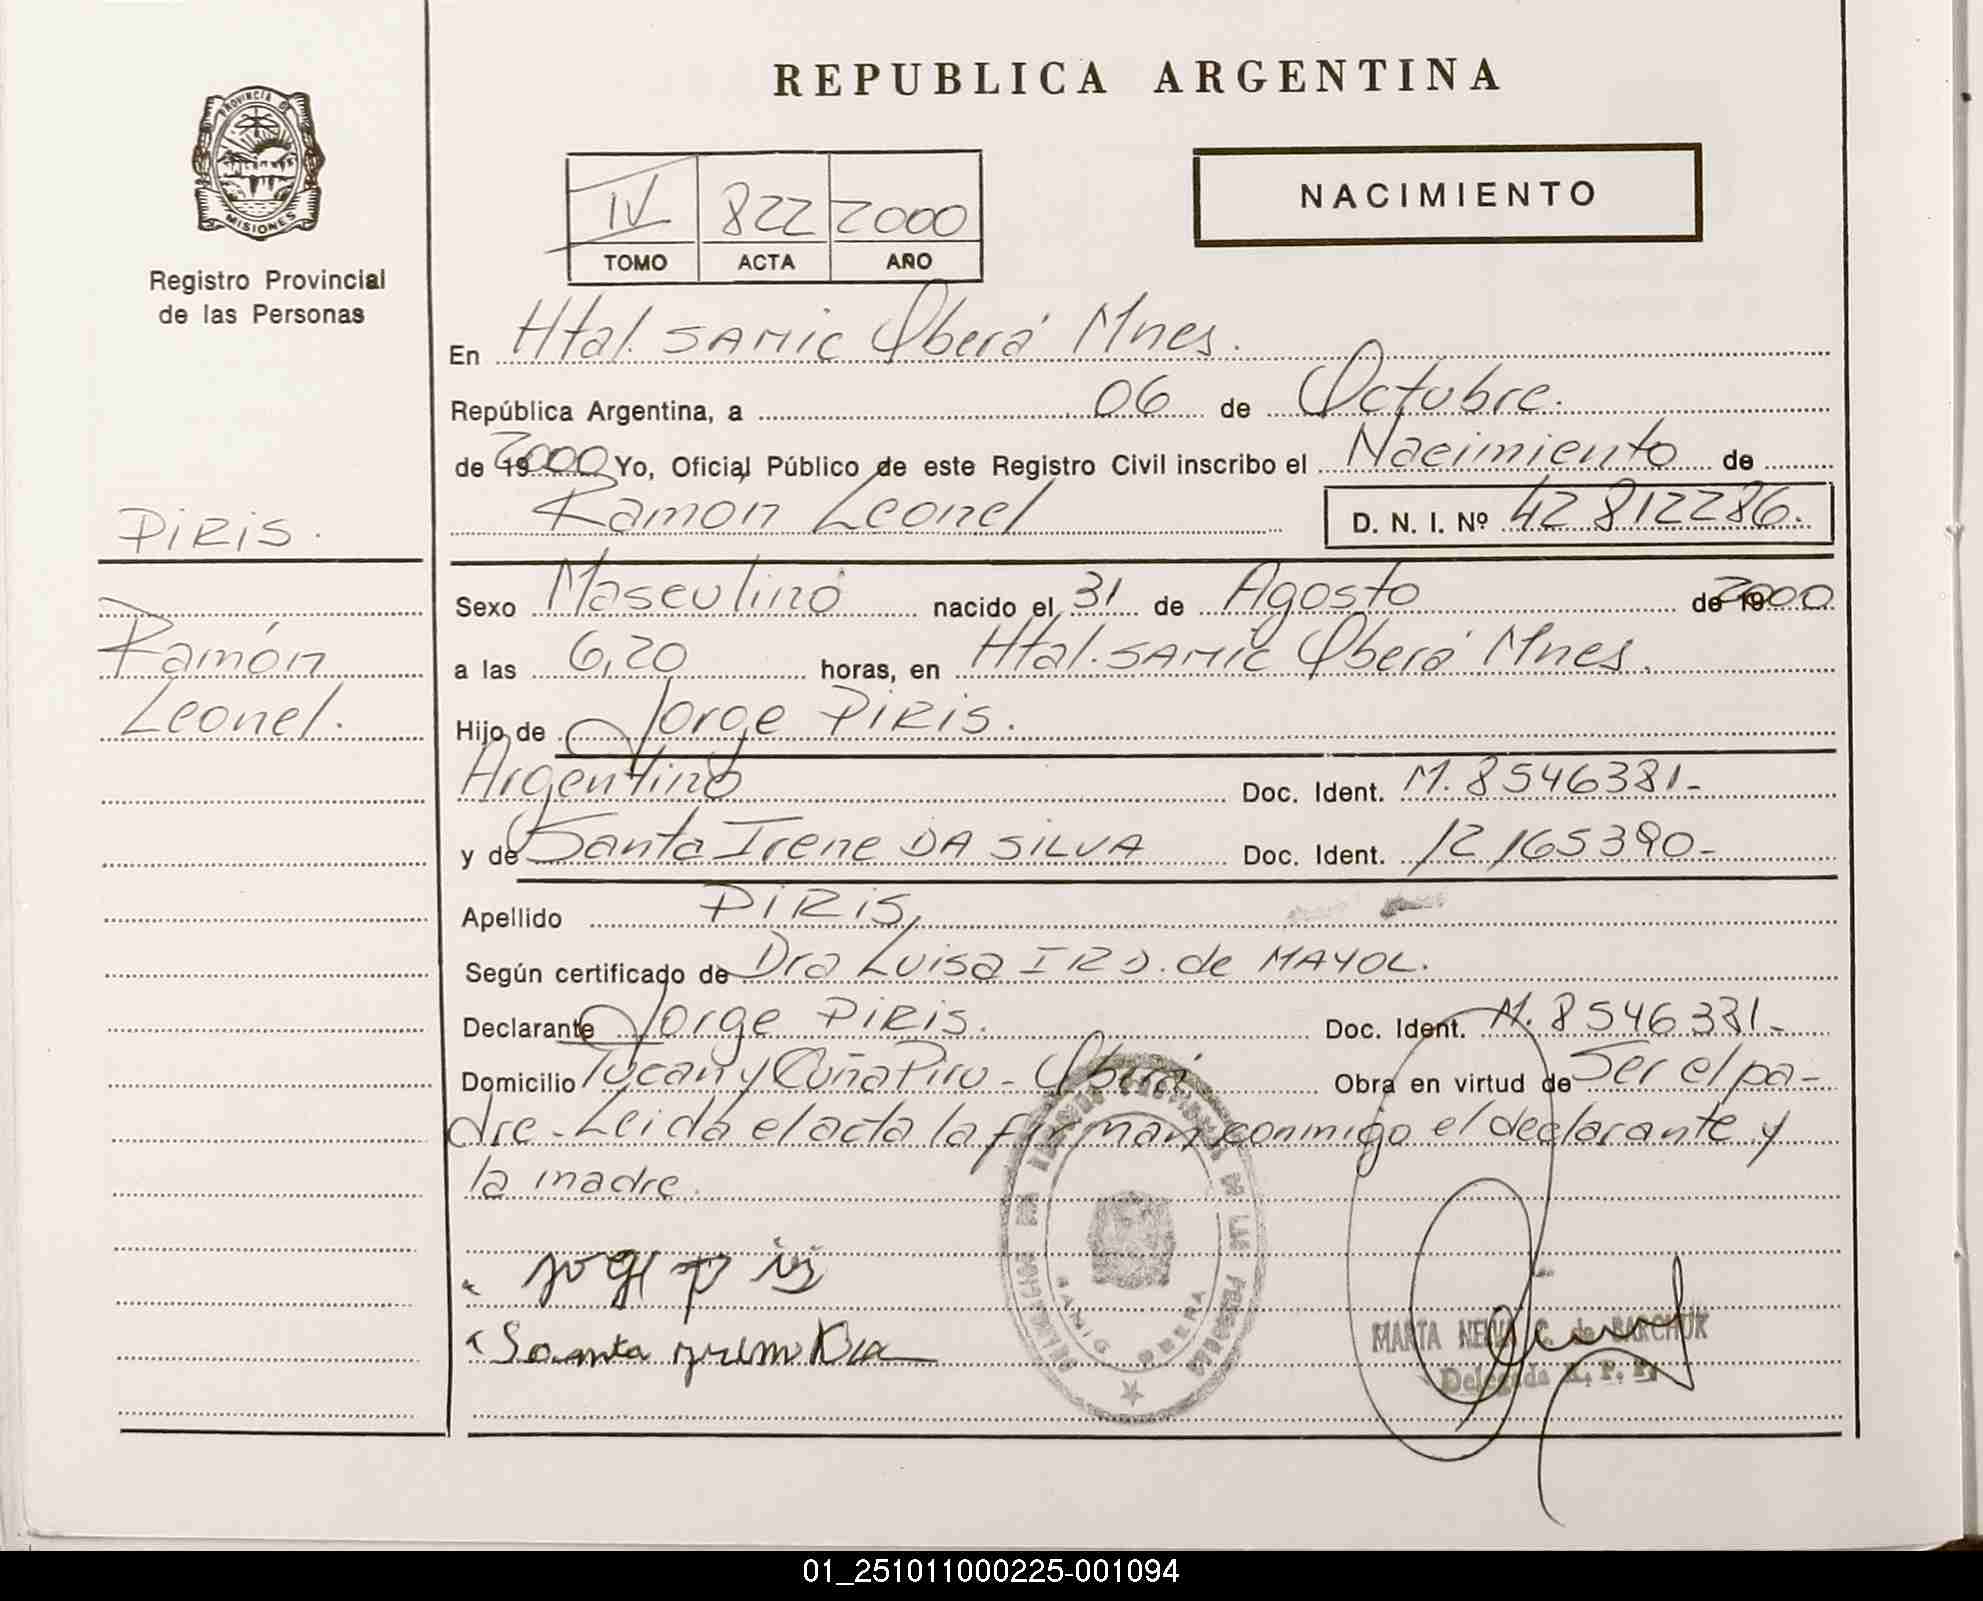 REPUBLICA ARGENTINA
PROVINCIA DE
MISIONES
Registro Provincial
de las Personas
IV 822 2000
TOMO ACTA AÑO
NACIMIENTO
En Htal. SAMIC Oberá Mnes.
República Argentina, a 06 de Octubre.
de 2000 Yo, Oficial Público de este Registro Civil inscribo el Nacimiento de
Ramon Leonel D. N. I. Nº 42 812286.
PIRIS.
Ramón
Leonel.
Sexo Masculino nacido el 31 de Agosto de 2000
a las 6,20 horas, en Htal. SAMIC Oberá Mnes.
Hijo de Jorge PIRIS.
Argentino Doc. Ident. M. 8546381-
y de Santa Irene DA SILVA Doc. Ident. 12165390-
Apellido PIRIS,
Según certificado de Dra Luisa de MAYOL.
Declarante Jorge PIRIS. Doc. Ident. M. 8546381-
Domicilio Tucan y Cuña Piru - Oberá Obra en virtud de Ser el pa-
dre - Leida el acta la firman conmigo el declarante y
la madre.
SAMIC OBERA
MARTA C. de BARCHUK
Delegada R. P. P.
01_251011000225-001094